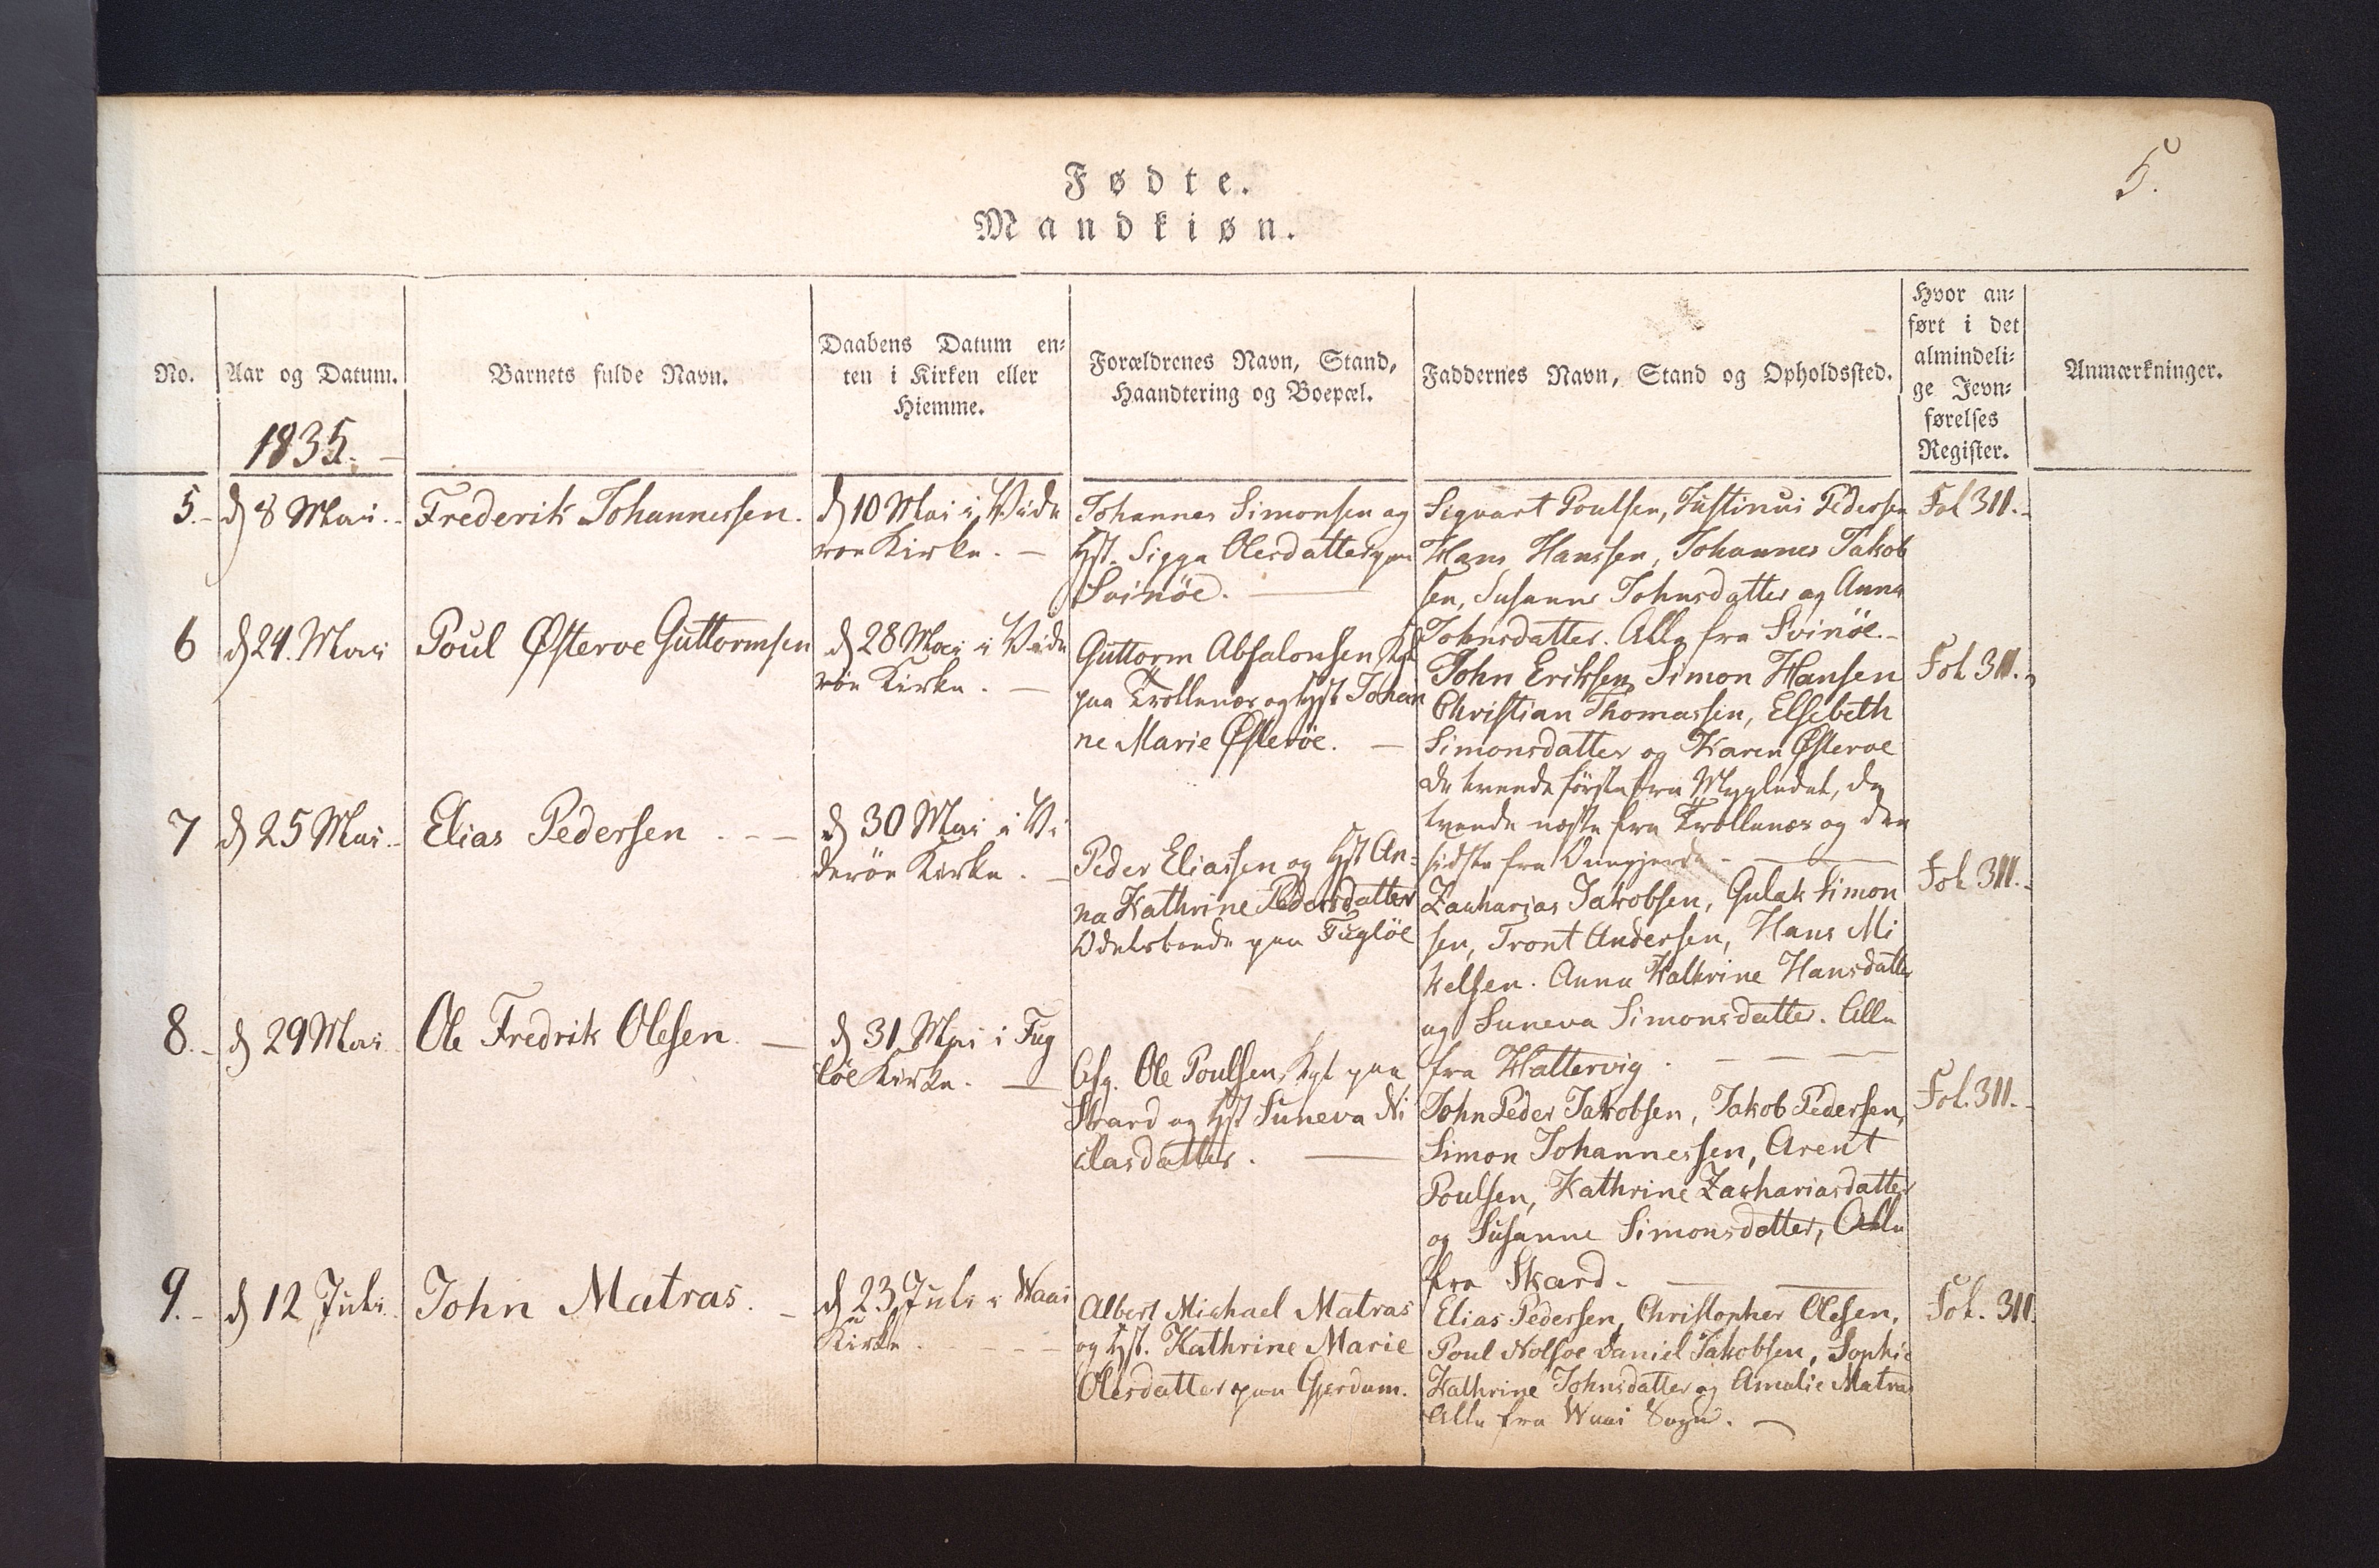 5.
Fødte.
Mandkiøn.
No.
Aar og Datum.
Barnets fulde Navn.
Daabens Datum en-
ten i Kirken eller
Hiemme.
Forældrenes Navn, Stand,
Haandtering og Boepæl.
Faddernes Navn, Stand og Opholdssted.
Hvor an-
ført i det
almindeli-
ge Jevn-
førelses
Register.
Anmærkninger.
1835.
5.
d 8 Mai.
Frederik Johannessen.
d 10 Mai i Vide
röe Kirke.
Johannes Simonsen og
Hst. Sigga Olesdatter paa
Svinöe.
Sigvart Poulsen, Justinus Pedersen
Hans Hanssen, Johannes Jakob
sen, Susanne Johnsdatter og Anna
Johnsdatter. Alle fra Svinöe.
Fol 311.
6
d 24. Mai
Poul Østeroe Guttormsen
d 28 Mai i Vide
röe Kirke.
Guttorm Absalonsen
paa Trollenæs og Hst Johan
ne Marie Østeröe.
John Eriksen, Simon Hansen
Christian Thomassen, Elsebeth
Simonsdatter og Karen Østeroe
de tvende förste fra Mygledal, de
tvende næste fra Trollenæs og den
sidste fra
Fol 311.
7
d 25 Mai.
Elias Pedersen
d 30 Mai i Vi
deröe Kirke.
Peder Eliassen og Hst An-
na Kathrine Pedersdatter
Odelsbonde paa Fuglöe
Zacharias Jakobsen, Gulak Simon
sen, Tront Andersen, Hans Mi
kelsen. Anna Kathrine Hansdatter
og Suneva Simonsdatter. Alle
fra Hattervig.
Fol 311.
8.
d 29 Mai
Ole Fredrik Olesen.
d 31 Mai i Fug
löe Kirke.
Ole Poulsen, Kgl paa
Skard og Hst Suneva Ni
clasdatter.
John Peder Jakobsen, Jakob Pedersen,
Simon Johannessen, Arent
Poulsen, Kathrine Zachariasdatter
og Susanne Simonsdatter, Alle
fra Skard.
Fol. 311.
9.
d 12 Juli
John Matras.
d 23 Juli i Waai
Kirke.
Albert Michael Matras
og Hst. Kathrine Marie
Olesdatter paa Gjerdum.
Elias Pedersen, Christopher Olesen,
Poul Nolsoe Daniel Jakobsen, Sophie
Kathrine Johnsdatter og Amalie Matras
Alle fra Waai Sogn.
Fol. 311.